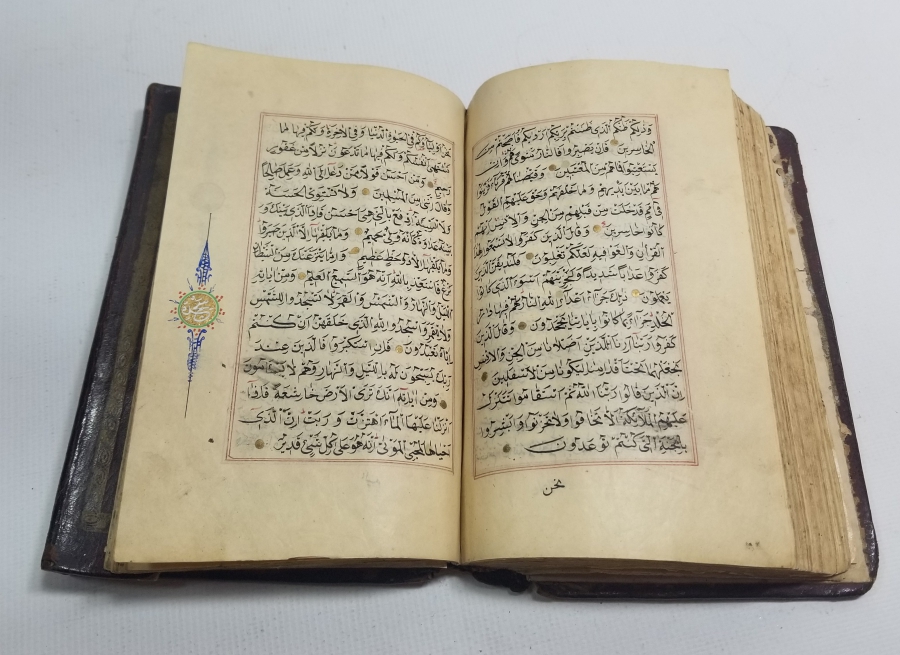 وَذٰلِكُمْ ظَنُّكُمُ الَّذِي ظَنَنْتُمْ بِرَبِّكُمْ اَرْدٰيكُمْ فَاَصْبَحْتُمْ مِنَ
الْخَاسِرِينَ فَاِنْ يَصْبِرُوا فَالنَّارُ مَثْوًى لَهُمْ وَاِنْ
يَسْتَعْتِبُوا فَمَا هُمْ مِنَ الْمُعْتَبِينَ وَقَيَّضْنَا لَهُمْ قُرَنَاءَ فَزَيَّنُوا
لَهُمْ مَا بَيْنَ اَيْدِيهِمْ وَمَا خَلْفَهُمْ وَحَقَّ عَلَيْهِمُ الْقَوْلُ
فِي اُمَمٍ قَدْ خَلَتْ مِنْ قَبْلِهِمْ مِنَ الْجِنِّ وَالْاِنْسِ اِنَّهُمْ
كَانُوا خَاسِرِينَ وَقَالَ الَّذِينَ كَفَرُوا لَا تَسْمَعُوا لِهٰذَا
الْقُرْاٰنِ وَالْغَوْا فِيهِ لَعَلَّكُمْ تَغْلِبُونَ فَلَنُذِيقَنَّ الَّذِينَ
كَفَرُوا عَذَابًا شَدِيدًا وَلَنَجْزِيَنَّهُمْ اَسْوَءَ الَّذِي كَانُوا
يَعْمَلُونَ ذٰلِكَ جَزَاءُ اَعْدَاءِ اللهِ النَّارُ لَهُمْ فِيهَا دَارُ
الْخُلْدِ جَزَاءً بِمَا كَانُوا بِاٰيَاتِنَا يَجْحَدُونَ وَقَالَ الَّذِينَ
كَفَرُوا رَبَّنَا اَرِنَا الَّذَيْنِ اَضَلَّانَا مِنَ الْجِنِّ وَالْاِنْسِ
نَجْعَلْهُمَا تَحْتَ اَقْدَامِنَا لِيَكُونَا مِنَ الْاَسْفَلِينَ
اِنَّ الَّذِينَ قَالُوا رَبُّنَا اللهُ ثُمَّ اسْتَقَامُوا تَتَنَزَّلُ
عَلَيْهِمُ الْمَلَائِكَةُ اَلَّا تَخَافُوا وَلَا تَحْزَنُوا وَاَبْشِرُوا
بِالْجَنَّةِ الَّتِي كُنْتُمْ تُوعَدُونَ
نحن
نَحْنُ اَوْلِيَاؤُكُمْ فِي الْحَيٰوةِ الدُّنْيَا وَفِي الْاٰخِرَةِ وَلَكُمْ فِيهَا مَا
تَشْتَهِي اَنْفُسُكُمْ وَلَكُمْ فِيهَا مَا تَدَّعُونَ نُزُلًا مِنْ غَفُورٍ
رَحِيمٍ وَمَنْ اَحْسَنُ قَوْلًا مِمَّنْ دَعَا اِلَى اللهِ وَعَمِلَ صَالِحًا
وَقَالَ اِنَّنِي مِنَ الْمُسْلِمِينَ وَلَا تَسْتَوِي الْحَسَنَةُ
وَلَا السَّيِّئَةُ اِدْفَعْ بِالَّتِي هِيَ اَحْسَنُ فَاِذَا الَّذِي بَيْنَكَ وَ
بَيْنَهُ عَدَاوَةٌ كَاَنَّهُ وَلِيٌّ حَمِيمٌ وَمَا يُلَقّٰيهَا اِلَّا الَّذِينَ صَبَرُوا
وَمَا يُلَقّٰيهَا اِلَّا ذُو حَظٍّ عَظِيمٍ وَاِمَّا يَنْزَغَنَّكَ مِنَ الشَّيْطَانِ
نَزْغٌ فَاسْتَعِذْ بِاللهِ اِنَّهُ هُوَ السَّمِيعُ الْعَلِيمُ وَمِنْ اٰيَاتِهِ
اللَّيْلُ وَالنَّهَارُ وَالشَّمْسُ وَالْقَمَرُ لَا تَسْجُدُوا لِلشَّمْسِ
وَلَا لِلْقَمَرِ وَاسْجُدُوا لِلّٰهِ الَّذِي خَلَقَهُنَّ اِنْ كُنْتُمْ
اِيَّاهُ تَعْبُدُونَ فَاِنِ اسْتَكْبَرُوا فَالَّذِينَ عِنْدَ
رَبِّكَ يُسَبِّحُونَ لَهُ بِاللَّيْلِ وَالنَّهَارِ وَهُمْ لَا يَسْاَمُونَ
وَمِنْ اٰيَاتِهِ اَنَّكَ تَرَى الْاَرْضَ خَاشِعَةً فَاِذَا
اَنْزَلْنَا عَلَيْهَا الْمَاءَ اهْتَزَّتْ وَرَبَتْ اِنَّ الَّذِي
اَحْيَاهَا لَمُحْيِ الْمَوْتٰى اِنَّهُ هُوَ عَلٰى كُلِّ شَيْءٍ قَدِيرٌ